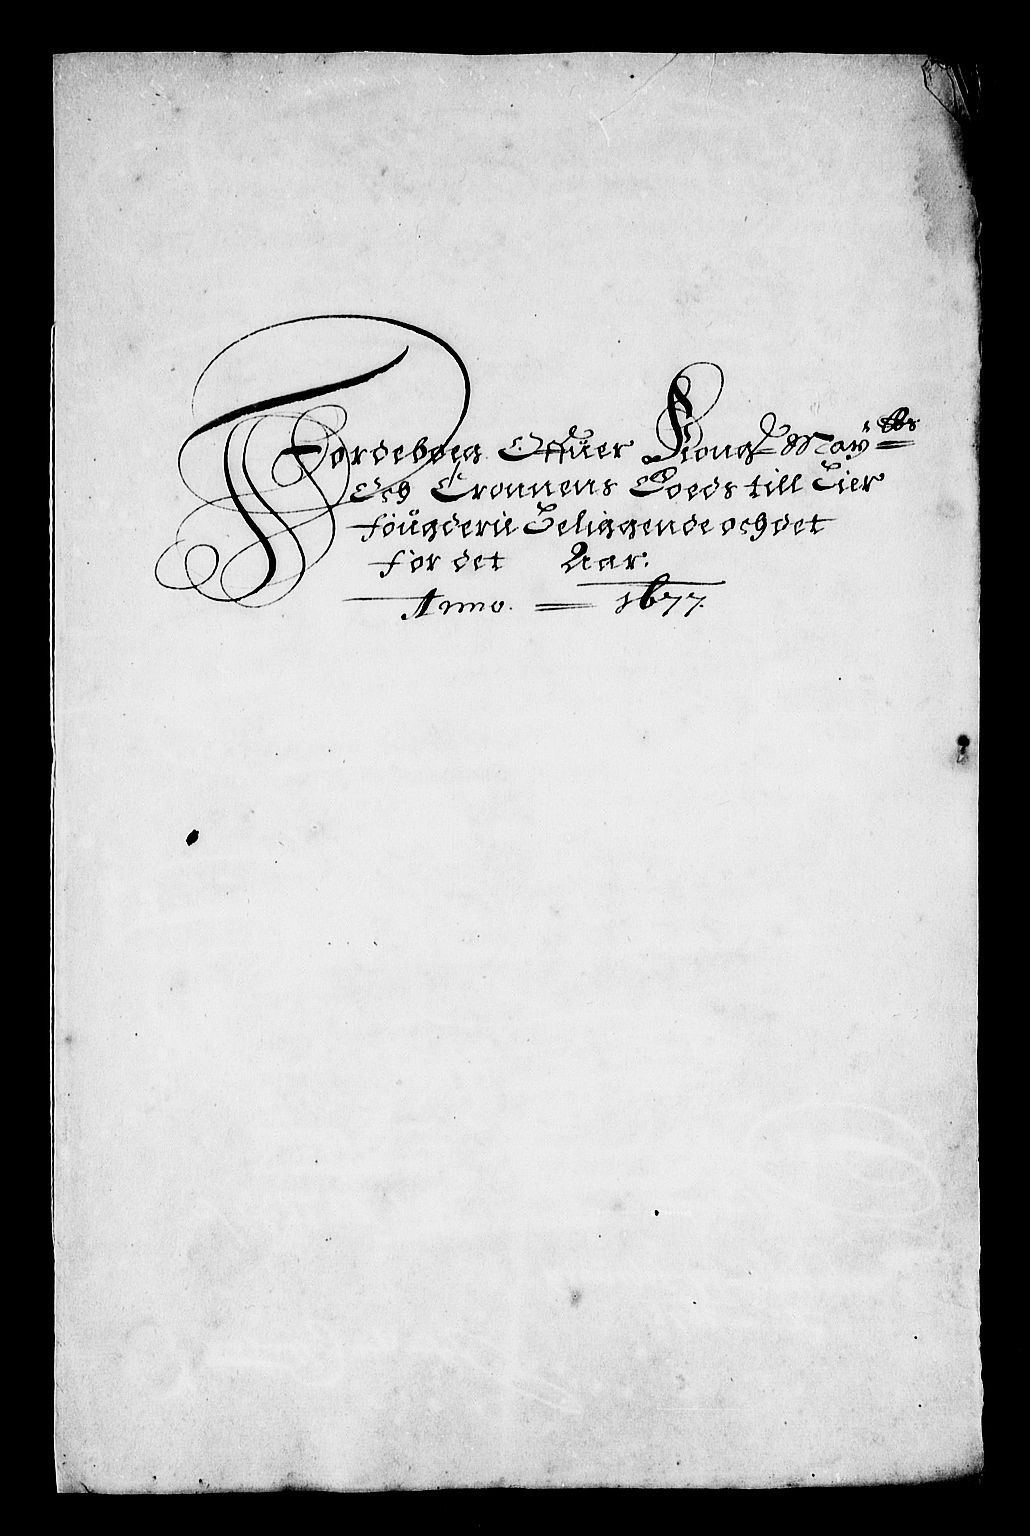 Jordebog Offuer Kong Maytts
Och Cronnens Goeds till Lier
föügderie Beliggende och det
for det Aar:
Anno. 1677.